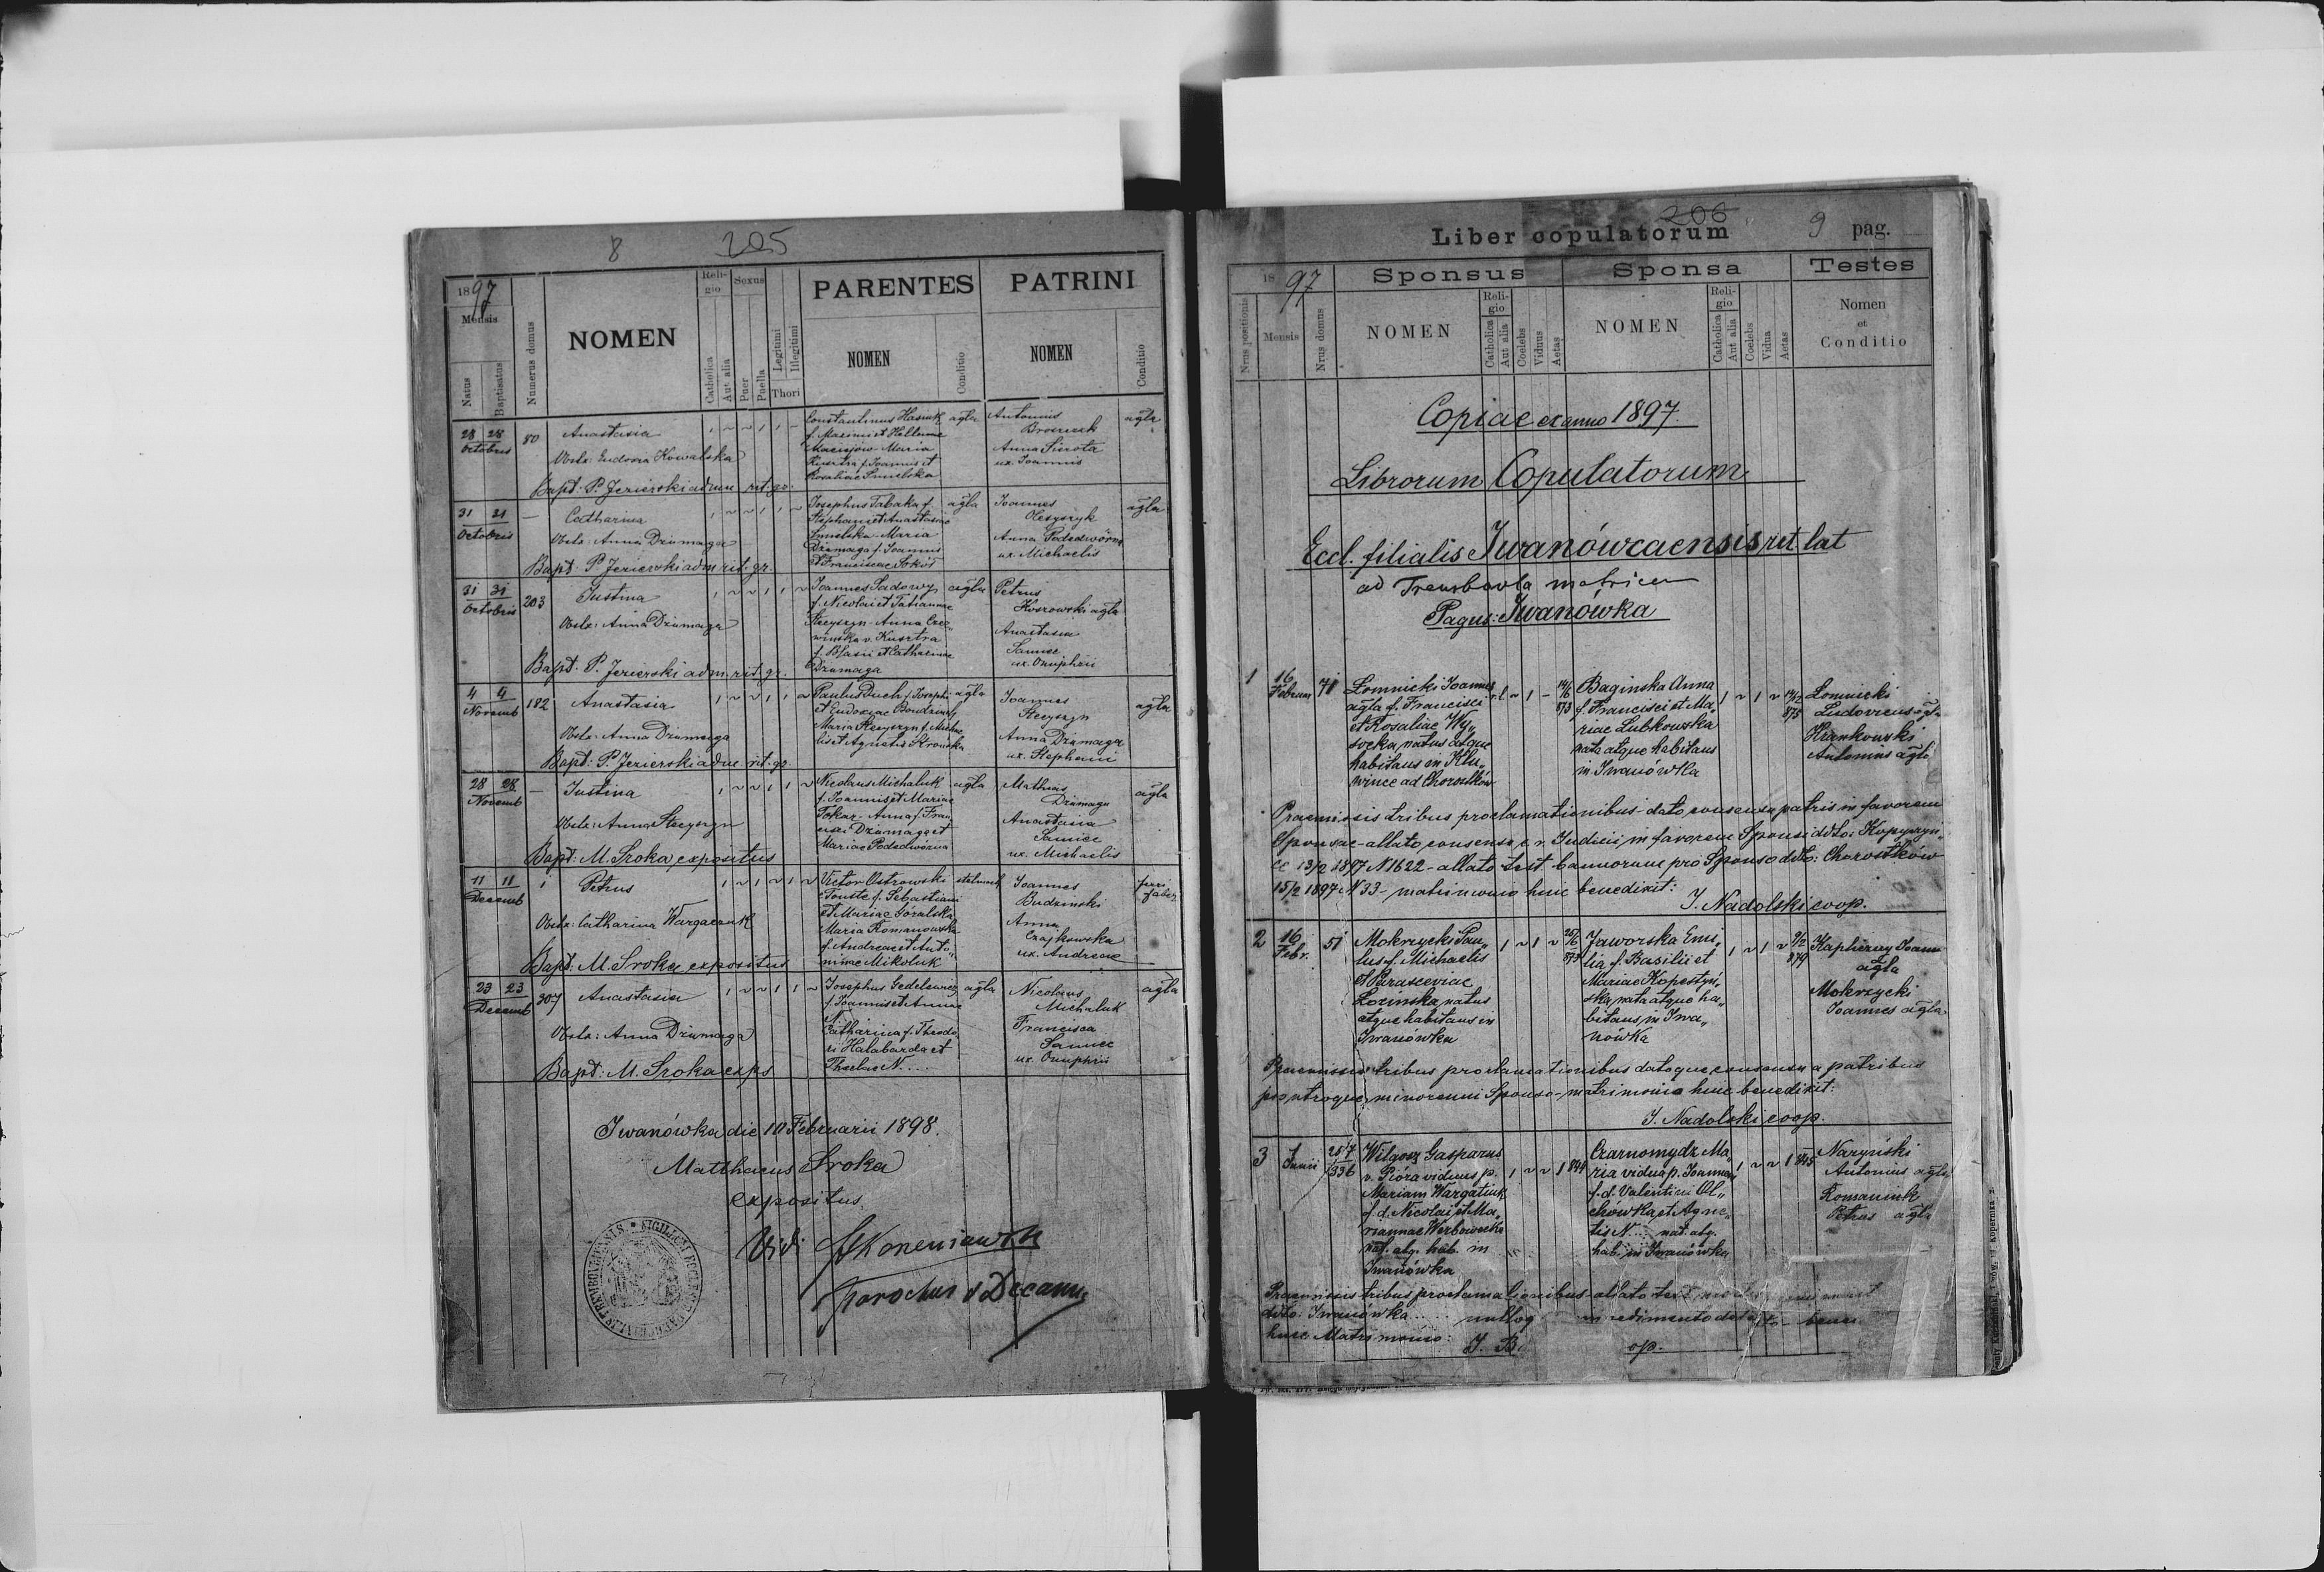 8 205
1897
Mensis
Natus
Baptisatus
Numerus domus
NOMEN
Reli-
gio
Catholica
Aut alia
Sexus
Puer
Puella
Legitimi
Illegitimi
Thori
PARENTES
NOMEN
Conditio
PATRINI
NOMEN
Conditio
28 28
Octobris
80
Anastasia
Obstx: Eudoxia Kowalska
Bapt. P. Jezierski adm rit. gr.
Constantinus Hasiuk
f. Maximi et Hellenae
Maciejów - Maria
Kusztra f. Joannis et
Rosaliae Smelska
agla
Antonius
Anna Sirota
ux. Joannis
agla
31 31
Octobris
—
Catharina
Obstx: Anna Dziumaga
Bapt. P. Jezierski adm rit. gr.
Josephus Tabaka f.
Stephani et Anastasiae
Smelska - Maria
Dziumaga f. Joannis
et Franciscae Sokół
agla
Joannes
Olexyszyk
Anna Podedwórna
ux. Michaelis
agla
31 31
Octobris
203
Justina
Obstx: Anna Dziumaga
Bapt. P. Jezierski adm. rit. gr.
Joannes Sadowy
f. Nicolai et Tatiannae
Steczyszyn - Anna Cze„
wińska v. Kusztra
f. Blasii et Catharinae
Dziumaga
agla
Petrus
Kossowski agla
Anastasia
Samiec
ux. Onuphrii
4 4
Novemb
182
Anastasia
Obstx: Anna Dziumaga
Bapt: P. Jezierski adm rit. gr.
Paulus Duch f. Josephi
et Eudoxiae
Maria Steczyszyn f. Micha„
lis et Agnetis
agla
Joannes
Steczyszyn
Anna Dziumaga
ux. Stephani
agla
28 28
Novemb
—
Justina
Obstx: Anna Steczyszyn
Bapt: M. Sroka expositus
Nicolaus Michaluk
f. Joannis et Mariae
Tokar - Anna f. Fran„
cisci Dziumaga et
Mariae Podedwórna
agla
Mathias
Dziumaga
Anastasia
Samiec
ux. Michaelis
agla
11 11
Decemb
1
Petrus
Obstx: Catharina Wargaciuk
Bapt: M. Sroka expositus
Victor Ostrowski
e Touste f. Sebastiani
et Mariae Góralska
Maria Romanowska
f. Andreae et Anto„
ninae Mikoluk
stelmach
Joannes
Budzinski
Anna
Czajkowska
ux. Andreae
ferri
faber
23 23
Decemb
307
Anastasia
Obstx: Anna Dziumaga
Bapt: M. Sroka exps
Josephus Gedelewicz
f. Joannis et Annae
N.
Catharina f. Theodo„
ri Halabarda et
Theclae N....
agla
Nicolaus
Michaluk
Francisca
Samiec
ux. Onuphrii
agla
Iwanówka die 10 Februarii 1898.
Matthaeus Sroka
expositus.
Vidi
Parochus et Decanus
206
Liber copulatorum 9 pag.
1897
Nrus positionis
Mensis
Nrus domus
Sponsus
NOMEN
Reli-
gio
Catholica
Aut alia
Coelebs
Viduus
Aetas
Sponsa
NOMEN
Reli-
gio
Catholica
Aut alia
Coelebs
Vidua
Aetas
Testes
Nomen
et
Conditio
Copiae ex anno 1897.
Librorum Copulatorum
Eccl. filialis Iwanówcaensis rit. lat
ad Trembovla matricem
Pagus: Iwanówka
1
16
Februar
71
Łomnicki Joannes
agla f. Francisci
et Rosaliae Wy„
socka, natus atque
habitans in Klu„
wince ad Chorostków
14/6
873
Baginska Anna
f. Francisci et Ma„
riae Lubkowska
nata atque habitans
in Iwanówka
14/2
875
Łomnicki
Ludovicus agla
Hrankowski
Antonius agla
Praemissis tribus proclamationibus dato consensu patris in favorem
Sponsae - allato consensu c. r. Judicii in favorem Sponsi ddto: Kopyczyn„
ce 13/2 1897 N 1622 - allato test. bannorum pro Sponso ddto: Chorostków
15/2 1897 N 33 - matrimonio hinc benedixit:
J. Nadolski coop.
2
16
Febr.
51
Mokrzycki Pau„
lus f. Michaelis
et Parasceviae
Łozinska natus
atque habitans in
Iwanówka
25/6
873
Jaworska Emi„
lia f. Basilii et
Mariae Kopestyń„
ska, nata atque ha„
bitans in Iwa„
nówka
9/2
879
Kapliczny Joann
agla
Mokrzycki
Joannes agla.
Praemissis tribus proclamationibus datoque consensu a patribus
pro utroque minorenni Sponso - matrimonio hinc benedixit:
J. Nadolski coop.
3
1
Junii
257
336
Wilgosz Gasparus
v. Pióra viduus p.
Mariam Wargatiuk
f. d. Nicolai et Ma„
riannae Werbowecka
nat. atq. hab. in
Iwanówka
1844
Czarnomydz Ma„
ria vidua p. Joannem
f. d. Valentini Ol„
chówka, et Agne„
tis N.... nat. atq.
hab. in Iwanówka
1845
Naryński
Antonius agla
Romaniuk
Petrus agla
Praemissis tribus proclamationibus allato test.
ddto: Iwanówka
hinc Matrimonio: